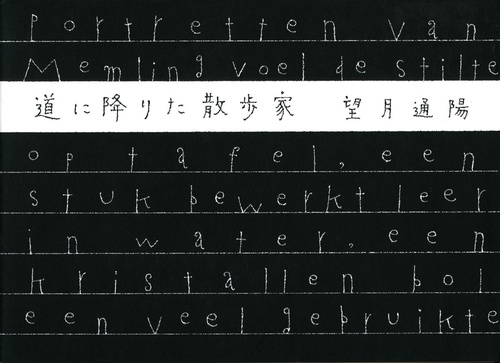 Portretten van
Memling voel de stilte
道に降りた散歩家 望月通陽
op tafel, een
stuk bewerkt leer
in water, een
kristallen bol
een veel gebruikte